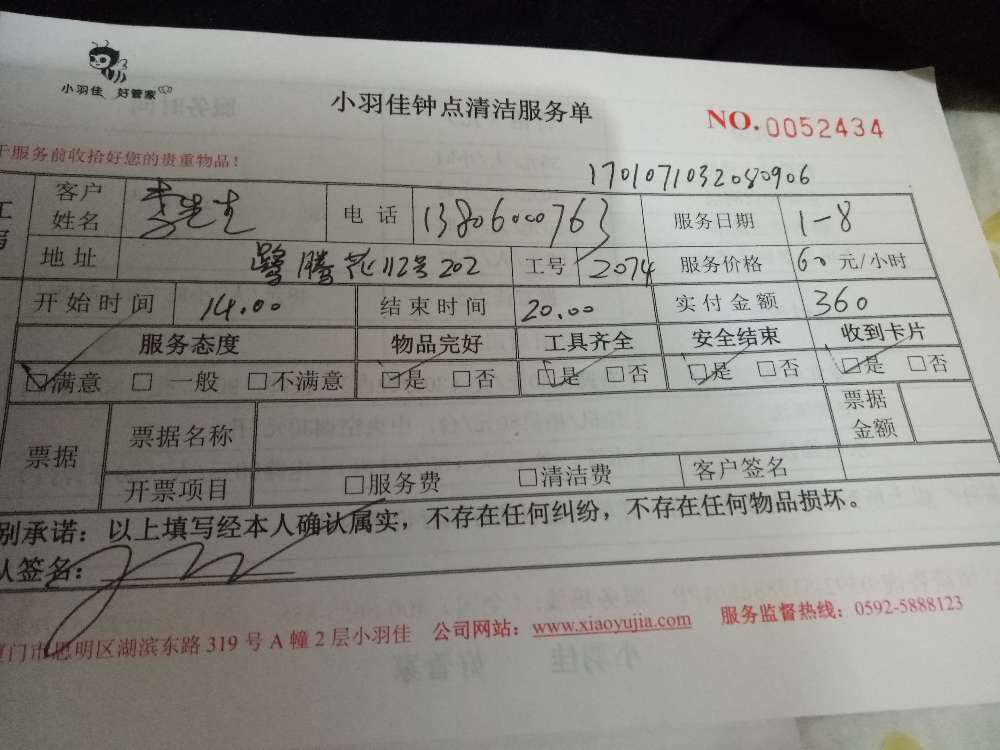 小羽佳 好管家
小羽佳钟点清洁服务单
NO.0052434
于服务前收拾好您的贵重物品！
1701071032080906
客户姓名 李先生 电话 13806000763 服务日期 1-8
地址 鹭腾花112号202 工号 2074 服务价格 60元/小时
开始时间 14.00 结束时间 20.00 实付金额 360
服务态度 物品完好 工具齐全 安全结束 收到卡片
☑满意 □一般 □不满意 ☑是 □否 ☑是 □否 ☑是 □否 ☑是 □否
票据 票据名称 票据金额
开票项目 □服务费 □清洁费 客户签名
别承诺：以上填写经本人确认属实，不存在任何纠纷，不存在任何物品损坏。
人签名：
厦门市思明区湖滨东路319号A幢2层小羽佳 公司网站：www.xiaoyujia.com 服务监督热线：0592-5888123